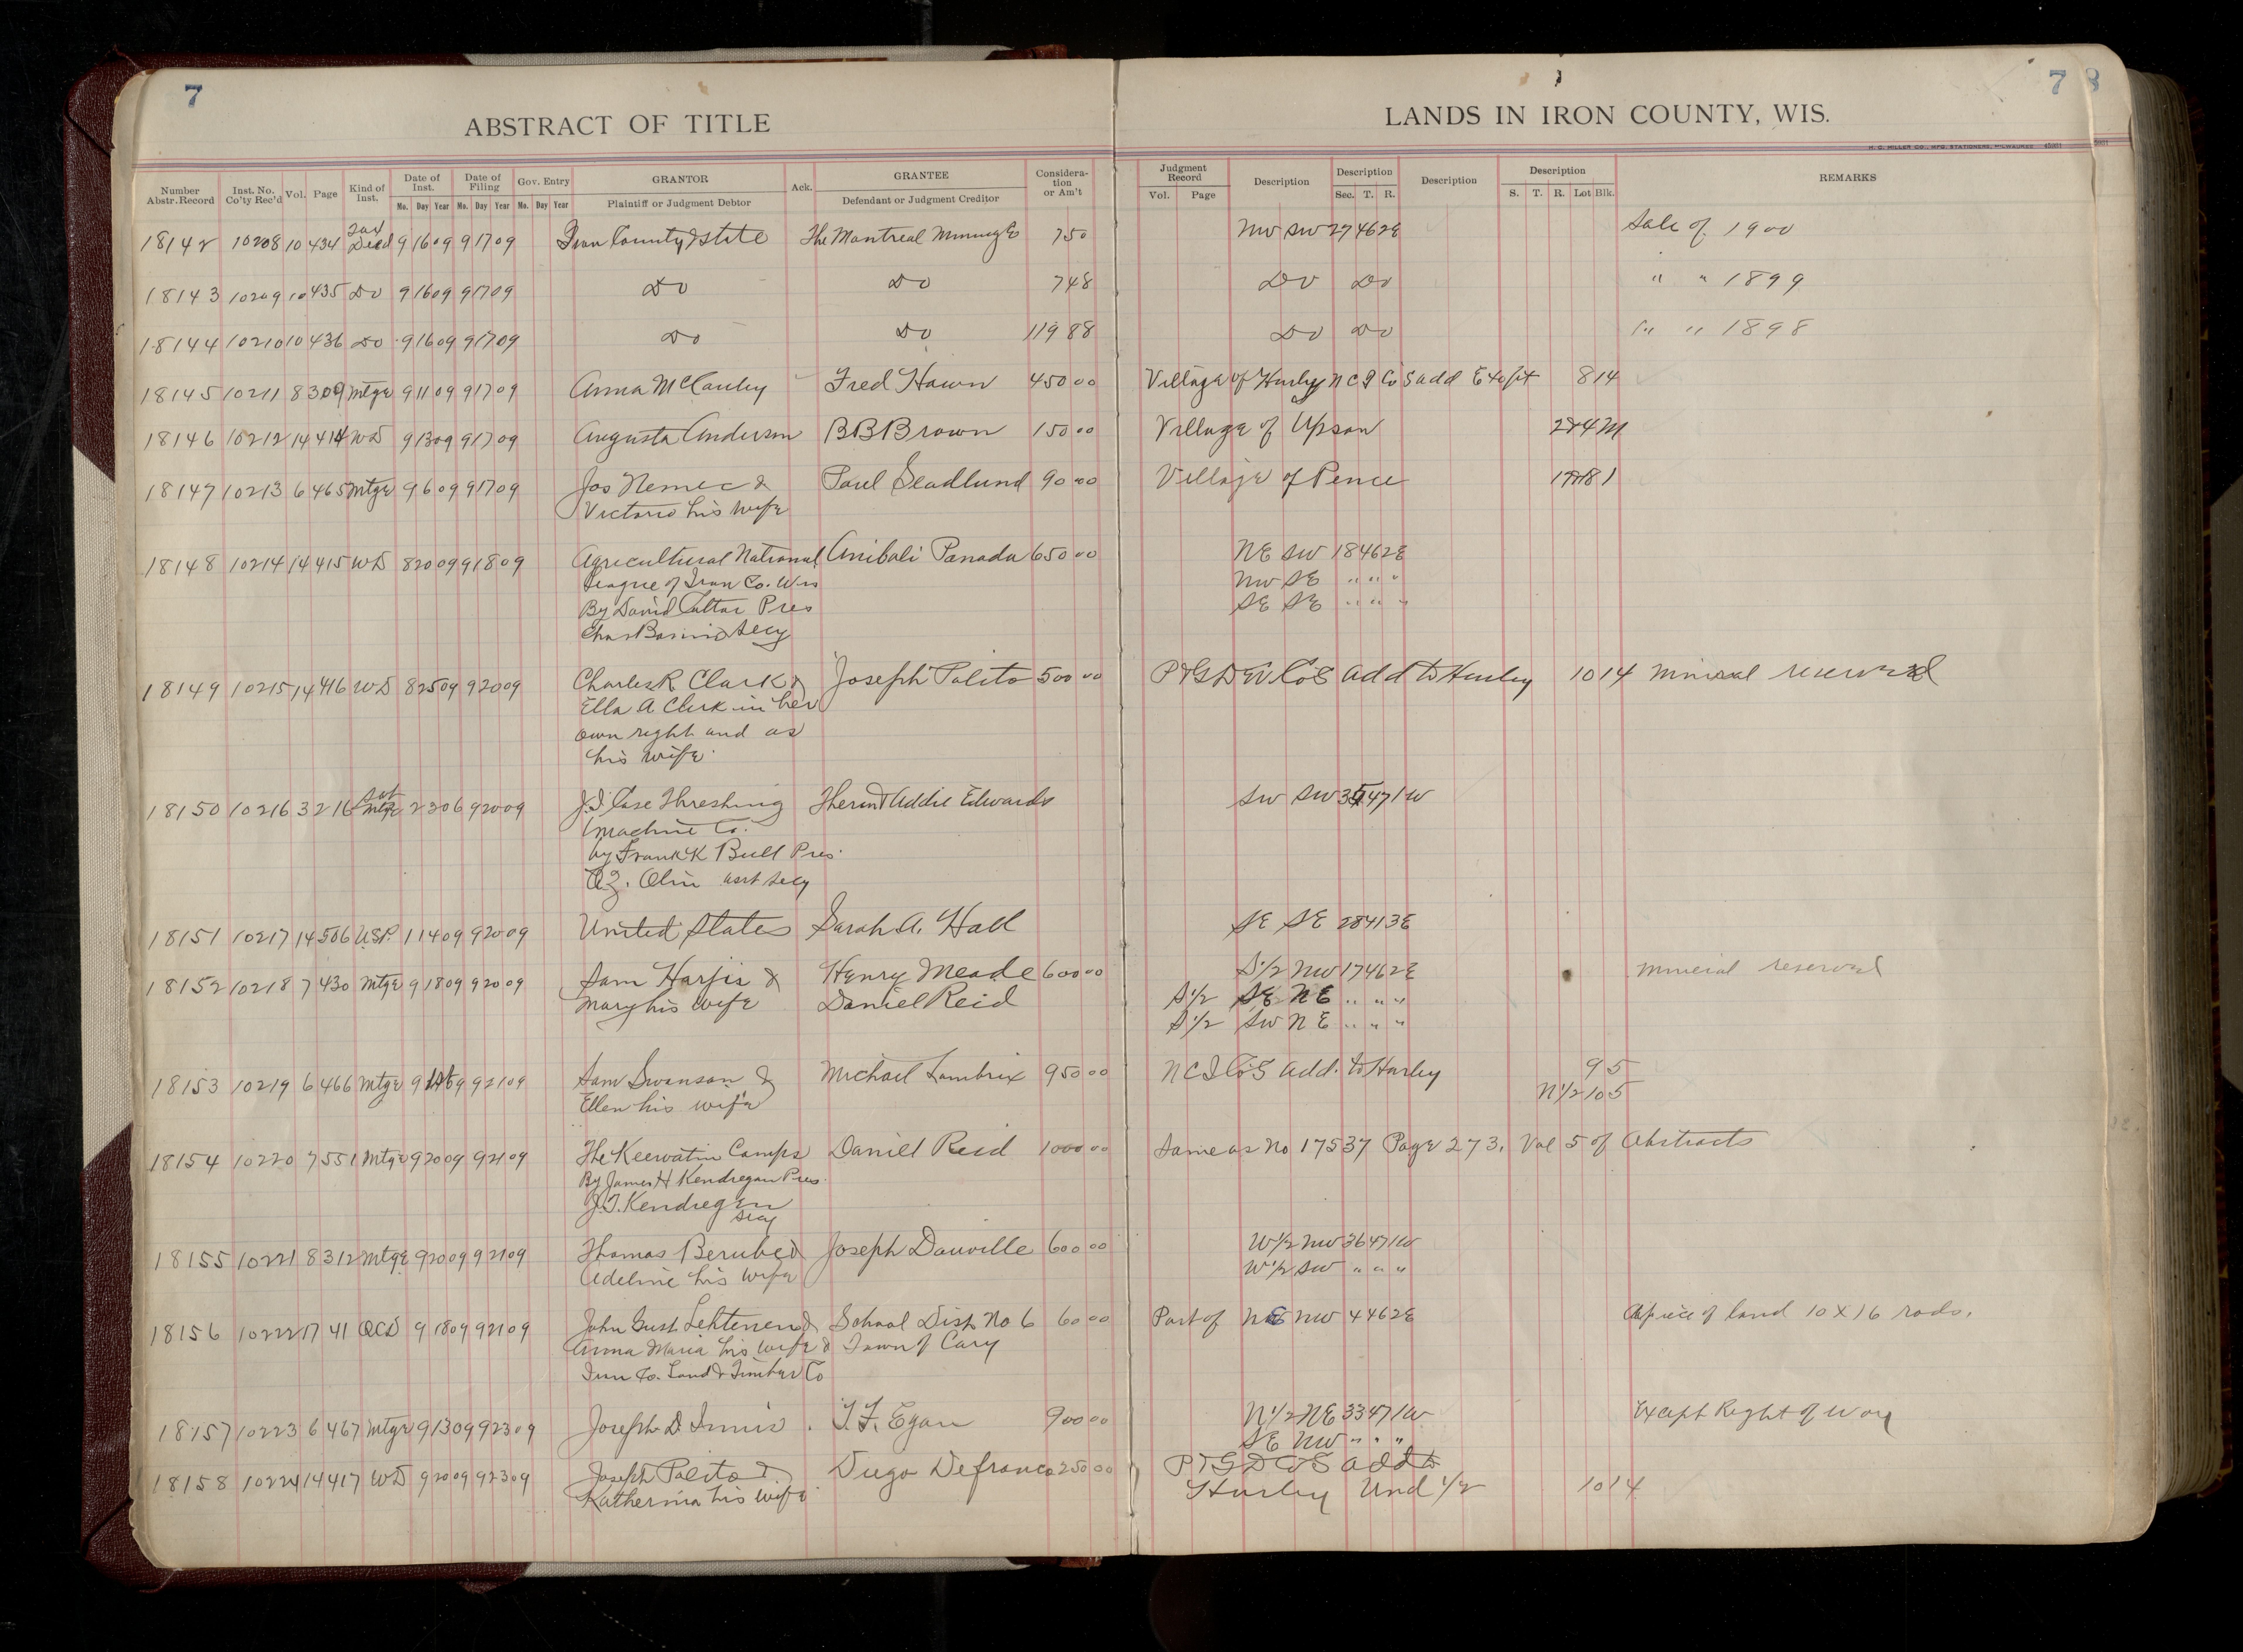 7
7 8
ABSTRACT OF TITLE
LANDS IN IRON COUNTY, WIS.
H. C. MILLER CO., MFG. STATIONERS, MILWAUKEE
Number Abstr. Record Inst. No. Co'ty Rec'd Vol. Page Kind of Inst. Date of Inst. Mo. Day Year Date of Filing Mo. Day Year Gov. Entry Mo. Day Year GRANTOR Plaintiff or Judgment Debtor Ack. GRANTEE Defendant or Judgment Creditor Considera-tion or Am't Judgment Record Vol. Page Description Description Sec. T. R. Description Description S. T. R. Lot Blk. REMARKS
18142 10208 10 434 Tax Deed 9 16 09 9 17 09 Iron County & State The Montreal Mining Co 7 50 NW SW 27 46 2E Sale of 1900
18143 10209 10 435 Do 9 16 09 9 17 09 Do Do 7 48 Do Do " " 1899
18144 10210 10 436 Do 9 16 09 9 17 09 Do Do 119 88 Do Do " " 1898
18145 10211 8 309 Mtge 9 11 09 9 17 09 Anna McCauley Fred Hawn 450 00 Village of Hurley N C I Co's add 8 14
18146 10212 14 414 WD 9 13 09 9 17 09 Augusta Anderson B B Brown 150 00 Village of Upson
18147 10213 6 465 Mtge 9 6 09 9 17 09 Jos Nemec & Paul Seadlund 90 00 Village of Pence
Victoria his wife
18148 10214 14 415 WD 8 20 09 9 18 09 Agricultural National Anibali Panada 650 00 NE SW 18 46 2E
League of Iron Co. Wis NW SE " " "
By David Pres SE SE " " "
Chas Secy
18149 10215 14 416 WD 8 25 09 9 20 09 Charles R Clark & Joseph Polito 500 00 add to Hurley 10 14 Mineral reserved
Ella A Clark in her
own right and as
his wife
18150 10216 3 216 Sat Mtge 2 3 06 9 20 09 J. I. Case Threshing Addie Edwards SW SW 35 47 1W
Machine Co.
by Frank K Bull Pres.
Olin asst secy
18151 10217 14 506 U.S.P. 1 14 09 9 20 09 United States Sarah A. Hall SE SE 28 41 3E
18152 10218 7 430 Mtge 9 18 09 9 20 09 Sam Harjis & Henry Meade 600 00 S 1/2 NW 17 46 2E Mineral reserved
Mary his wife Daniel Reid S 1/2 SE NE " " "
S 1/2 SW NE " " "
18153 10219 6 466 Mtge 9 09 9 21 09 Sam Swanson & Michael Lambrix 950 00 N C I Co's add. to Hurley 9 5
Ellen his wife N 1/2 10 5
18154 10220 7 551 Mtge 9 20 09 9 21 09 The Keewatin Camps Daniel Reid 1000 00 Same as No 17537 Page 273, Vol 5 of Abstracts
By James H Kendregan Pres.
J. T. Kendregan
Secy
18155 10221 8 312 Mtge 9 20 09 9 21 09 Thomas Berube & Joseph Dauville 600 00 W 1/2 NW 36 47 1W
Adeline his wife W 1/2 SW " " "
18156 10222 17 41 QCD 9 18 09 9 21 09 John Gust Lehtenen & School Dist No 6 60 00 Part of NE NW 4 46 2E A piece of land 10 X 16 rods.
Anna Maria his wife & Town of Cary
Iron Co. Land & Timber Co
18157 10223 6 467 Mtge 9 13 09 9 23 09 Joseph D. Innis T. F. Egan 900 00 N 1/2 NE 33 47 1W Except Right of Way
SE NW " " "
18158 10224 14 417 WD 9 20 09 9 23 09 Joseph Polito & Diego Defranco 250 00 add to
Katherina his wife Hurley Und 1/2 10 14